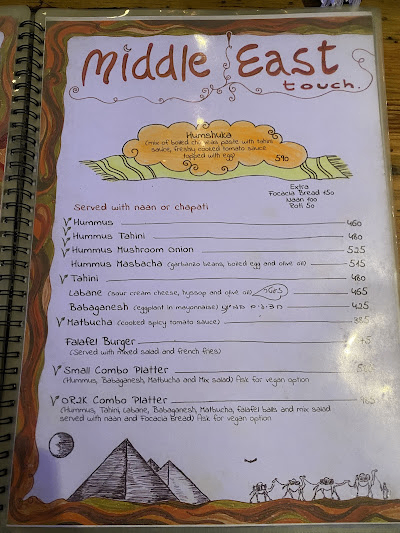 Middle East
touch.
Humshuka
(mix of boiled chickpeas paste with Tahini
sauce, freshly cooked tomato sauce
topped with egg) 590
Extra
Focacia Bread 150
Naan 100
Roti 50
Served with naan or chapati
Hummus 460
Hummus Tahini 480
Hummus Mushroom Onion 525
Hummus Masbacha (garbanzo beans, boiled egg and olive oil) 515
Tahini 480
Labane (sour cream cheese, hyssop and olive oil) 465
Babaganesh (eggplant in mayonnaise) 425
Matbucha (cooked spicy tomato sauce) 385
Falafel Burger
(Served with mixed salad and french fries)
Small Combo Platter
(Hummus, Babaganesh, Matbucha and Mix salad) Ask for vegan option
OR2K Combo Platter
(Hummus, Tahini, Labane, Babaganesh, Matbucha, falafel balls and mix salad
served with naan and Focacia Bread) Ask for vegan option